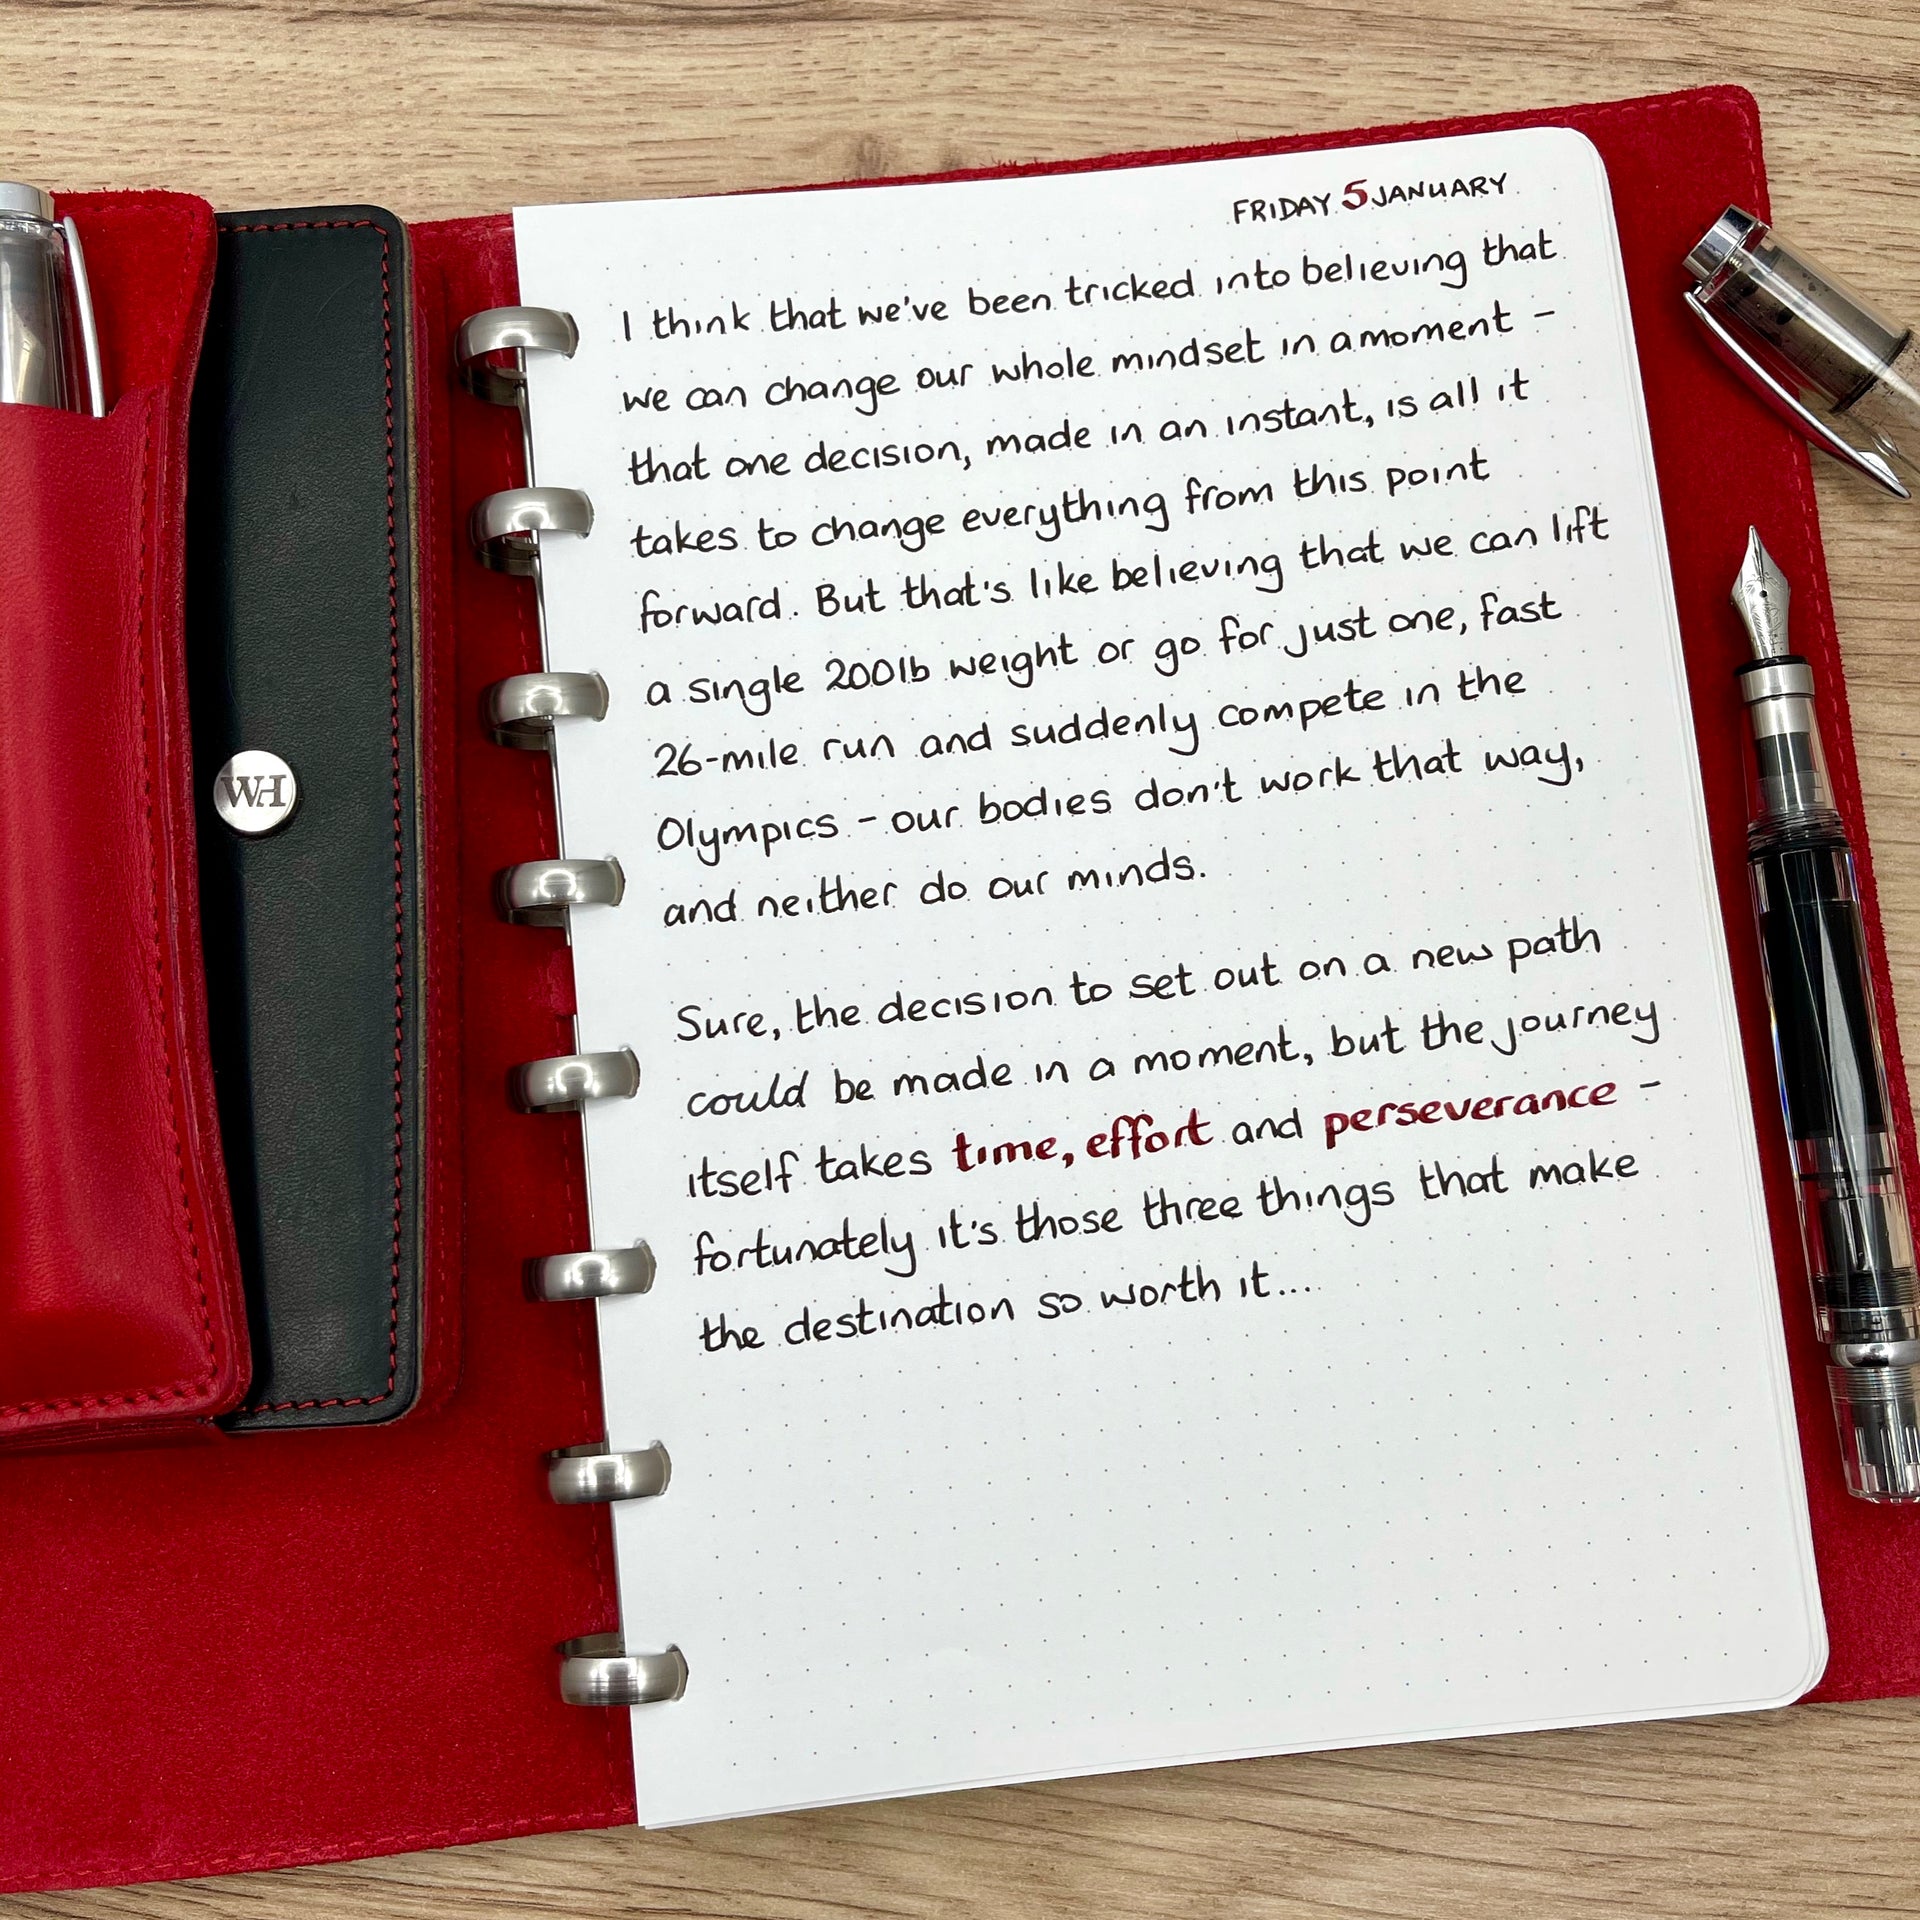 FRIDAY 5 JANUARY
I think that we've been tricked into believing that
we can change our whole mindset in a moment -
that one decision, made in an instant, is all it
takes to change everything from this point
forward. But that's like believing that we can lift
a single 200lb weight or go for just one, fast
26-mile run and suddenly compete in the
Olympics - our bodies don't work that way,
and neither do our minds.
Sure, the decision to set out on a new path
could be made in a moment, but the journey
itself takes time, effort and perseverance -
fortunately it's those three things that make
the destination so worth it....
WH